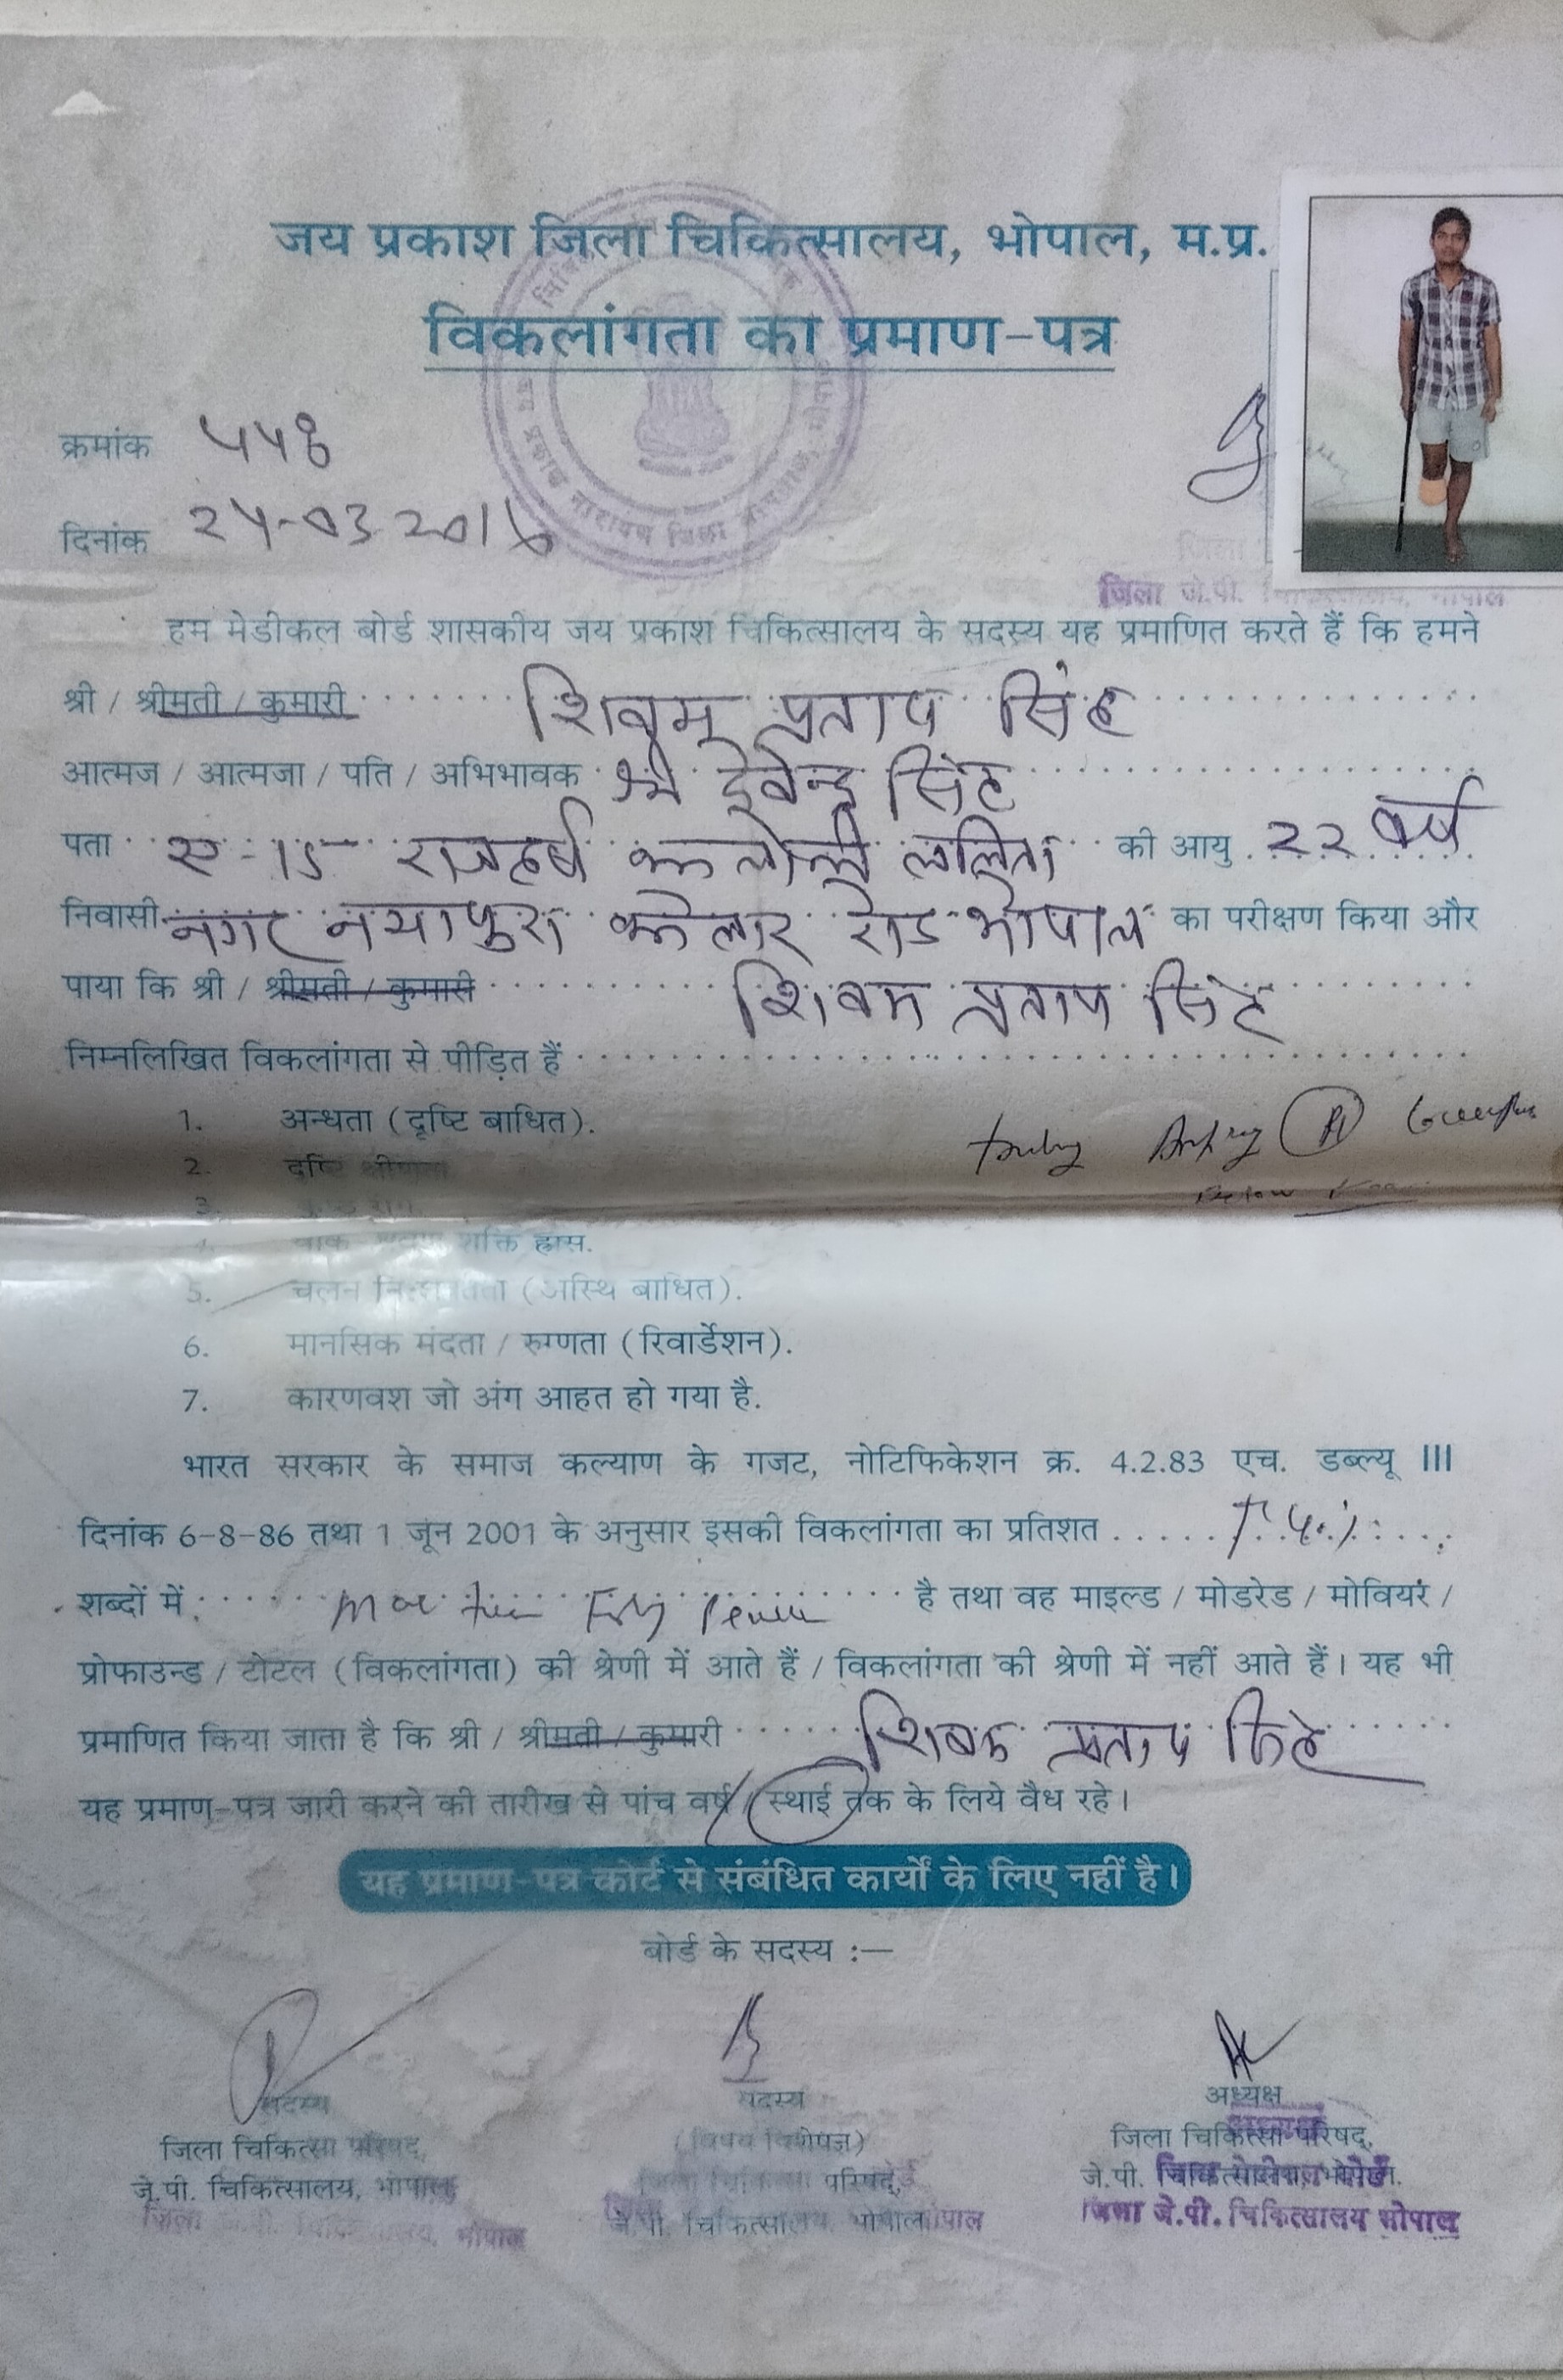 जय प्रकाश जिला चिकित्सालय, भोपाल, म.प्र.
विकलांगता का प्रमाण-पत्र
क्रमांक
दिनांक 24-03-2016
जिला जे.पी. चिकित्सालय, भोपाल
हम मेडीकल बोर्ड शासकीय जय प्रकाश चिकित्सालय के सदस्य यह प्रमाणित करते हैं कि हमने
श्री / श्रीमती / कुमारी शिवम प्रताप सिंह
आत्मज / आत्मजा / पति / अभिभावक श्री देवेन्द्र सिंह
पता ए-15 राजहर्ष कालोनी ललिता की आयु 22 वर्ष
निवासी नगर नयापुरा कोलार रोड भोपाल का परीक्षण किया और
पाया कि श्री / श्रीमती / कुमारी शिवम प्रताप सिंह
निम्नलिखित विकलांगता से पीड़ित हैं
1. अन्धता (दृष्टि बाधित).
2. दृष्टि
3.
4. शक्ति ह्रास.
5. चलन (अस्थि बाधित).
6. मानसिक मंदता / रुग्णता (रिवार्डेशन).
7. कारणवश जो अंग आहत हो गया है.
भारत सरकार के समाज कल्याण के गजट, नोटिफिकेशन क्र. 4.2.83 एच. डब्ल्यू III
दिनांक 6-8-86 तथा 1 जून 2001 के अनुसार इसकी विकलांगता का प्रतिशत
शब्दों में है तथा वह माइल्ड / मोडरेड / मोवियरं /
प्रोफाउन्ड / टोटल (विकलांगता) की श्रेणी में आते हैं / विकलांगता की श्रेणी में नहीं आते हैं। यह भी
प्रमाणित किया जाता है कि श्री / श्रीमती / कुमारी शिवम प्रताप सिंह
यह प्रमाण-पत्र जारी करने की तारीख से पांच वर्ष / स्थाई तक के लिये वैध रहे।
यह प्रमाण-पत्र कोर्ट से संबंधित कार्यों के लिए नहीं है।
बोर्ड के सदस्य :—
सदस्य सदस्य अध्यक्ष
जिला चिकित्सा परिषद्, (विषय विशेषज्ञ) जिला चिकित्सा परिषद्,
जे.पी. चिकित्सालय, भोपाल जिला चिकित्सा परिषद्, जे.पी. चिकित्सालय, भोपाल.
जे.पी. चिकित्सालय, भोपाल
अध्यक्ष
जिला मेडिकल बोर्ड
जिला जे.पी. चिकित्सालय भोपाल